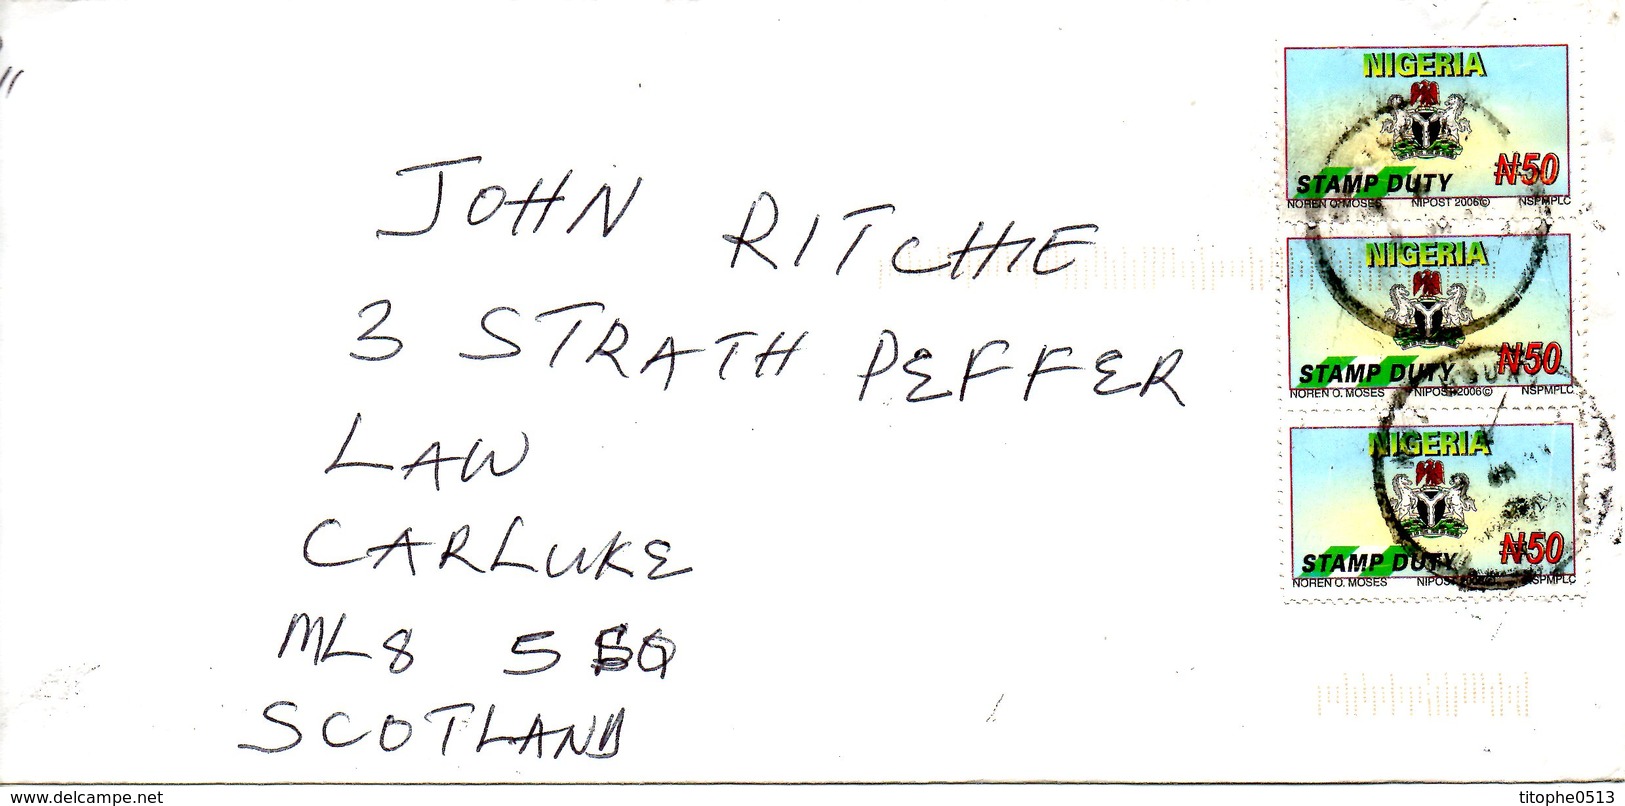 JOHN RITCHIE
3 STRATH PEFFER
LAW
CARLUKE
ML8 5
SCOTLAND
NIGERIA
STAMP DUTY ₦50
NOREN O. MOSES NIPOST 2006© NSPMPLC
NIGERIA
STAMP DUTY ₦50
NOREN O. MOSES NIPOST 2006© NSPMPLC
NIGERIA
STAMP DUTY ₦50
NOREN O. MOSES NSPMPLC
www.delcampe.net
titophe0513